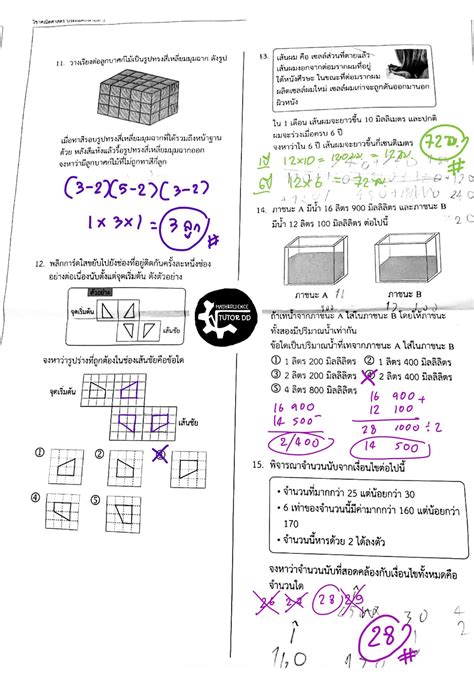 11. วางเรียงต่อลูกบาศก์ไม้เป็นรูปทรงสี่เหลี่ยมมุมฉาก ดังรูป
เมื่อทาสีรอบรูปทรงสี่เหลี่ยมมุมฉากที่ได้รวมถึงหน้าฐาน
ด้วย หลังสีแห้งแล้วรื้อรูปทรงสี่เหลี่ยมมุมฉากออก
จงหาว่ามีลูกบาศก์ไม้ที่ไม่ถูกทาสีกี่ลูก
(3-2)(5-2)(3-2)
1x3x1 = 3 ลูก #
12. พลิกการ์ดใสขยับไปยังช่องที่อยู่ติดกันครั้งละหนึ่งช่อง
อย่างต่อเนื่องนับตั้งแต่จุดเริ่มต้น ดังตัวอย่าง
ตัวอย่าง
จุดเริ่มต้น
เส้นชัย
จงหาว่ารูปร่างที่ถูกต้องในช่องเส้นชัยคือข้อใด
จุดเริ่มต้น
เส้นชัย
① ② ③
④ ⑤
TUTOR DD
13. เส้นผม คือ เซลล์ส่วนที่ตายแล้ว
เส้นผมงอกจากต่อมรากผมที่อยู่
ใต้หนังศีรษะ ในขณะที่ต่อมรากผม
ผลิตเซลล์ผมใหม่ เซลล์ผมเก่าจะถูกดันออกมานอก
ผิวหนัง
ใน 1 เดือน เส้นผมจะยาวขึ้น 10 มิลลิเมตร และปกติ
ผมจะร่วงเมื่อครบ 6 ปี
จงหาว่าใน 6 ปี เส้นผมจะยาวขึ้นกี่เซนติเมตร
14. ภาชนะ A มีน้ำ 16 ลิตร 900 มิลลิลิตร และภาชนะ B
มีน้ำ 12 ลิตร 100 มิลลิลิตร ต่อไปนี้
ภาชนะ A
ภาชนะ B
ถ้าเทน้ำจากภาชนะ A ใส่ในภาชนะ B โดยให้ภาชนะ
ทั้งสองมีปริมาณน้ำเท่ากัน
ข้อใดเป็นปริมาณน้ำที่เทจากภาชนะ A ใส่ในภาชนะ B
① 1 ลิตร 200 มิลลิลิตร ② 1 ลิตร 400 มิลลิลิตร
③ 2 ลิตร 200 มิลลิลิตร ④ 2 ลิตร 400 มิลลิลิตร
⑤ 4 ลิตร 800 มิลลิลิตร
16 900 -
14 500
2/400
16 900 +
12 100
28 1000 ÷ 2
14 500
15. พิจารณาจำนวนนับจากเงื่อนไขต่อไปนี้
• จำนวนที่มากกว่า 25 แต่น้อยกว่า 30
• 6 เท่าของจำนวนนี้มีค่ามากกว่า 160 แต่น้อยกว่า
170
• จำนวนนี้หารด้วย 2 ได้ลงตัว
จงหาว่าจำนวนนับที่สอดคล้องกับเงื่อนไขทั้งหมดคือ
จำนวนใด
26 27 28 29
28 #